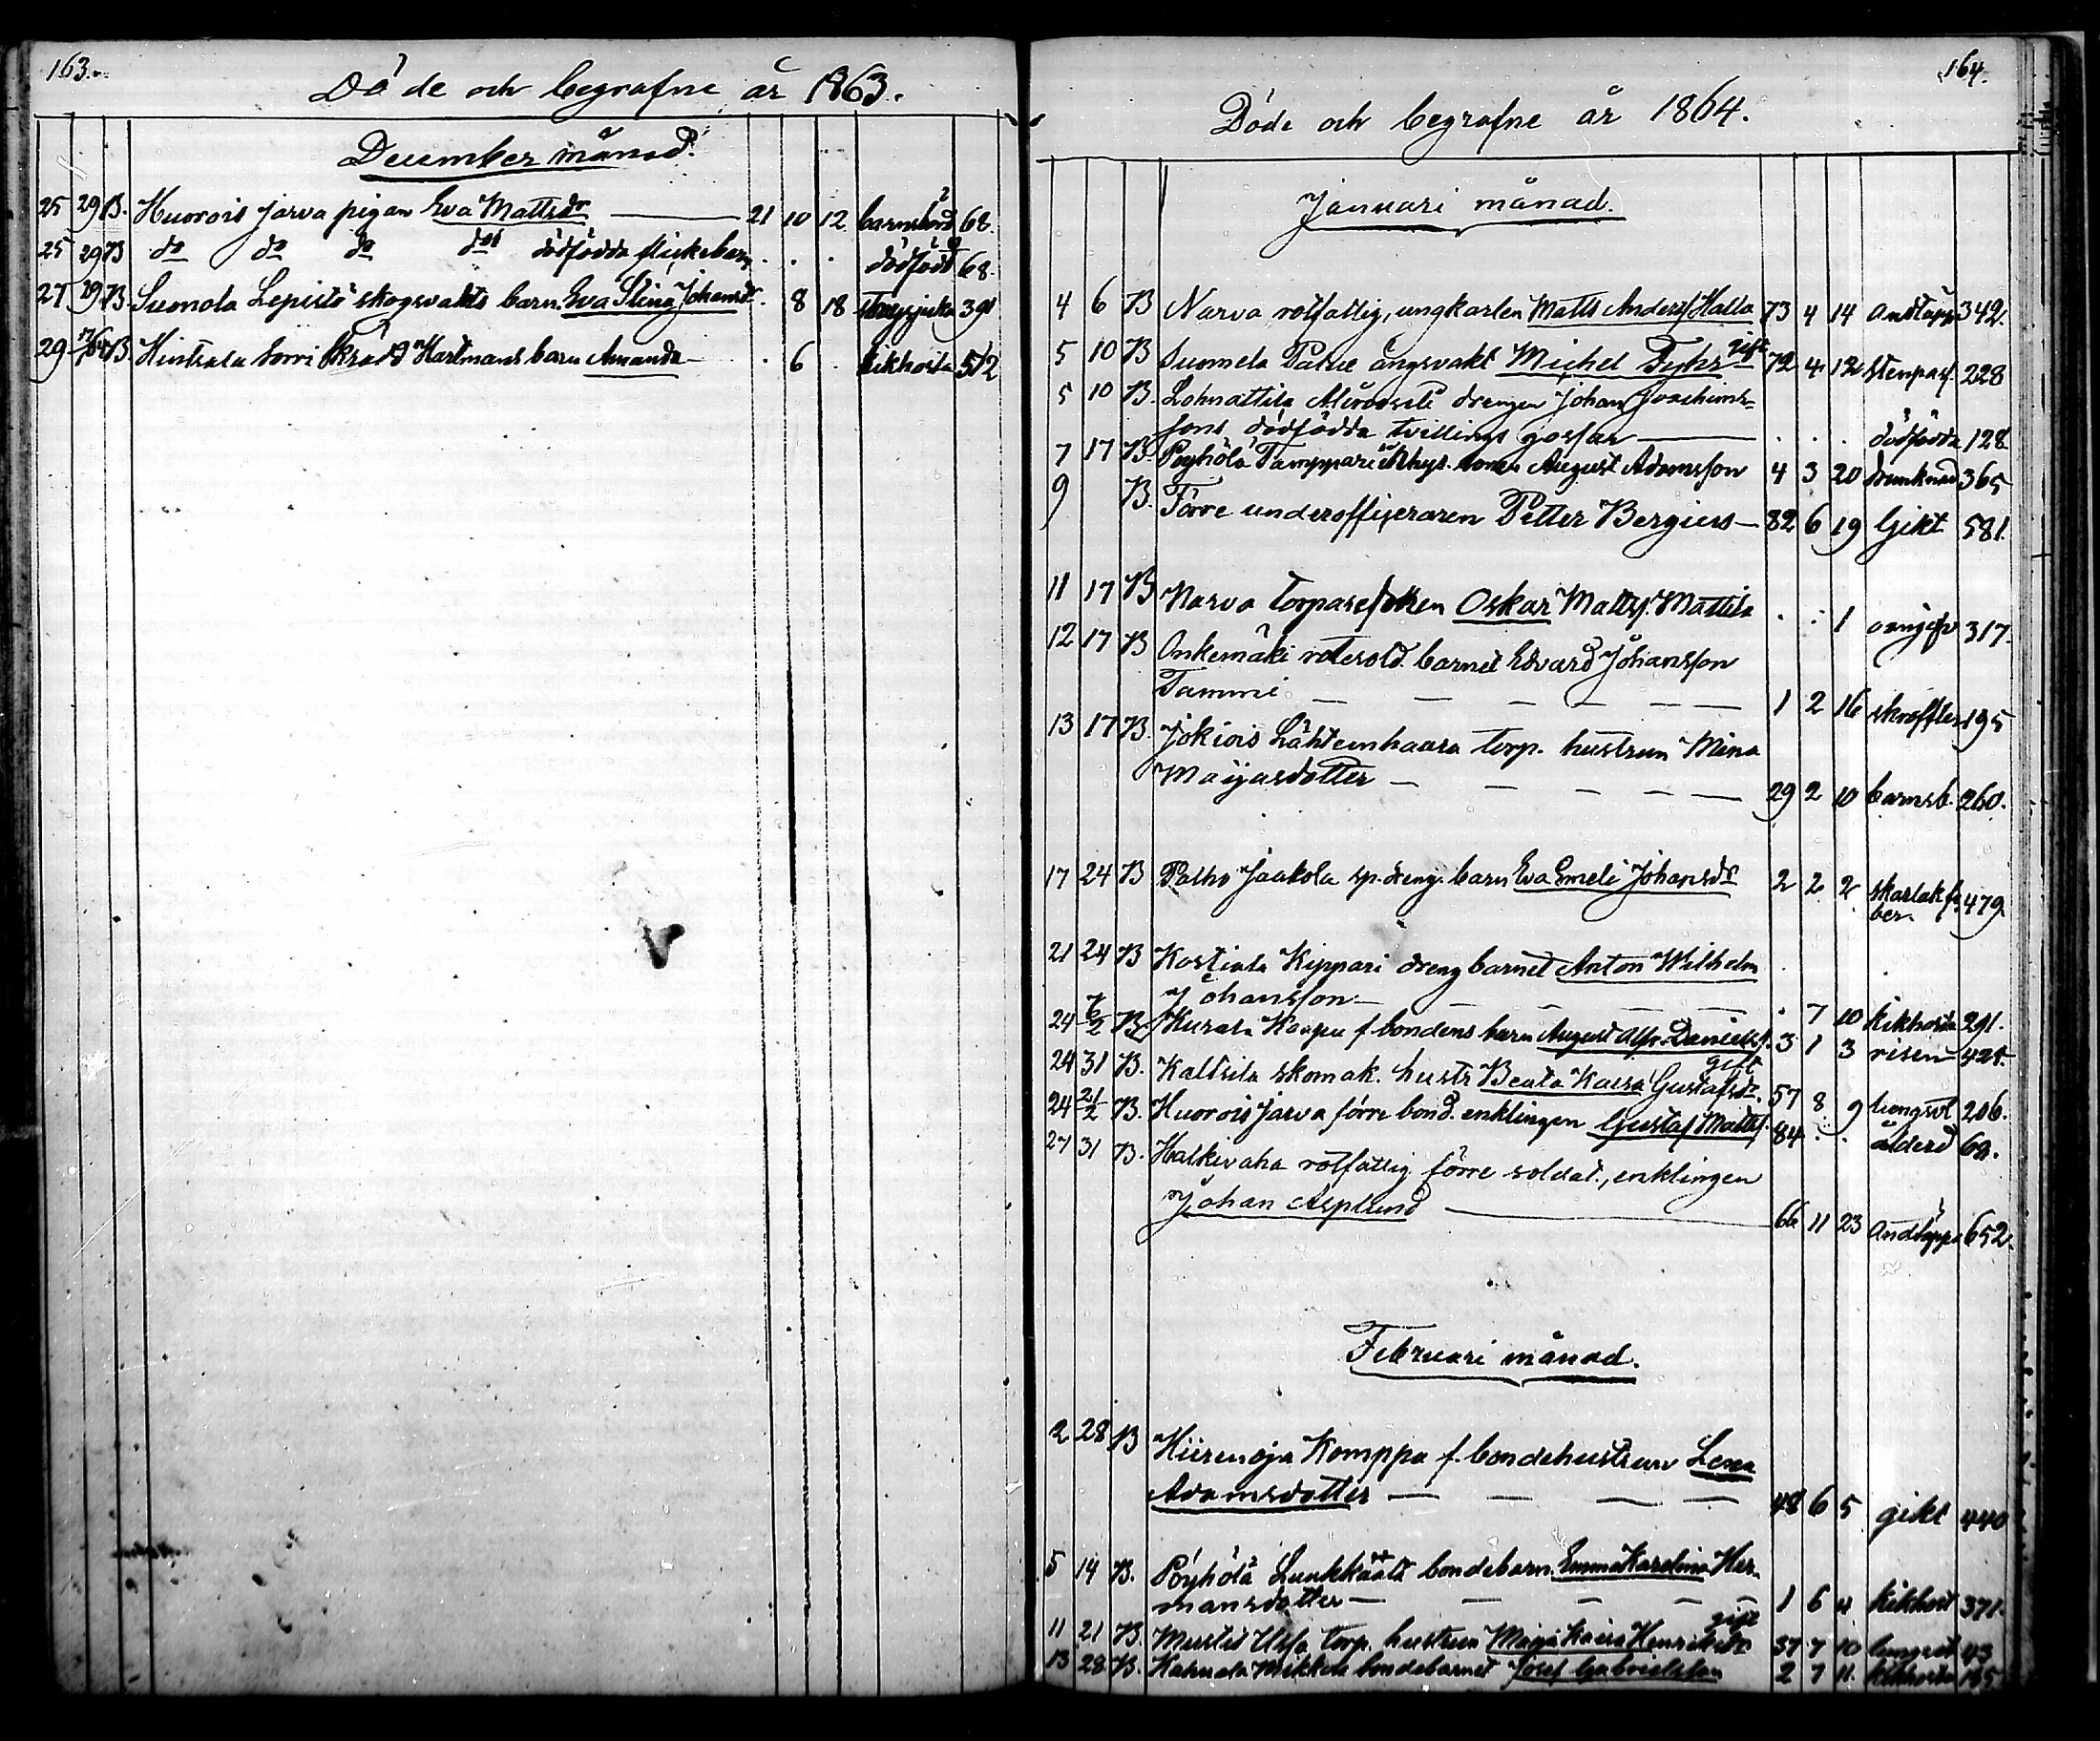 163.
Döde och begrafne år 1863.
December månad.
25 29 B. Huorois Jarva pigan Eva Mattsdr 21 10 12 barnsbörd 68.
25 29 B do do do dödfödda flickebarn . . . dödfödd 68.
27 29 B. Suonola Lepistö skogsvakts barn Eva Stina Johansdr . 8 18 39
29 B. Hintsala Sorri skrädd Hartmans barn Amanda . 6 . kikhosta 512
164.
Döde och begrafne år 1864.
Januari månad.
4 6 B Narva rotfattig, ungkarlen Matts Anderss Halla 73 4 14 andtäppa 342.
gift
5 10 B Suomela ängsvakt Michel 72 4 12 stenpass. 228
5 10 B. drengen Johan Joachims-
sons dödfödda tvillings gossar . . . dödfödda 128
7 17 B. Pöyhölä Tamppari sonen August Adamsson 4 3 20 drunknad 365
9 B. Förre underofficeraren Petter Bergius 82 6 19 Gikt 581.
11 17 B Narva torparesonen Oskar Mattss. Mattila . . 1 317.
12 17 B Onkemäki rotesold. barnet Edvard Johansson
Tammi 1 2 16 skroffler 195
13 17 B. Jokiois Lähteenhaara torp. hustrun Mina
Maijasdotter 29 2 10 barnsb. 260.
17 24 B Palho Jaakola sp. dreng. barn Eva Emeli Johansdr 2 2 2 skarlakfe-
ber. 479
21 24 B Kostiala Kippari dreng barnet Anton Wilhelm
Johansson . 7 10 kikhosta 291.
24 7/2 B. Kurala Kaapu f. bondens barn August Alfr. Daniels. 3 1 3 risen
gift
24 31 B. Kaltsila skomak. hustr Beata Kaisa Gustafsdr. 57 8 9 lungsot 206.
24 21/2 B. Huorois Jarva förre bond. enklingen Gustaf Mattss. 84 . . ålderd 69.
27 31 B. Halkivaha rotfattig förre soldat., enklingen
Johan Asplund 66 11 23 Andtäppa 652.
Februari månad.
2 28 B Hiirenoja Komppa f. bondehustrun Lena
Adamsdotter 48 6 5 gikt 440
5 14 B. Pöyhölä Luukkaala bondebarn. Emma Karolina Her-
mansdotter 1 6 4 kikhost 371.
gift
11 21 B. Mustis Ussa torp. hustrun Maja Kaisa Henriksdr 37 7 10 lungsot 43
13 28 B. Kahuala Mikkola bondebarnet Josef Gabrielsson 2 7 11. kikhosta